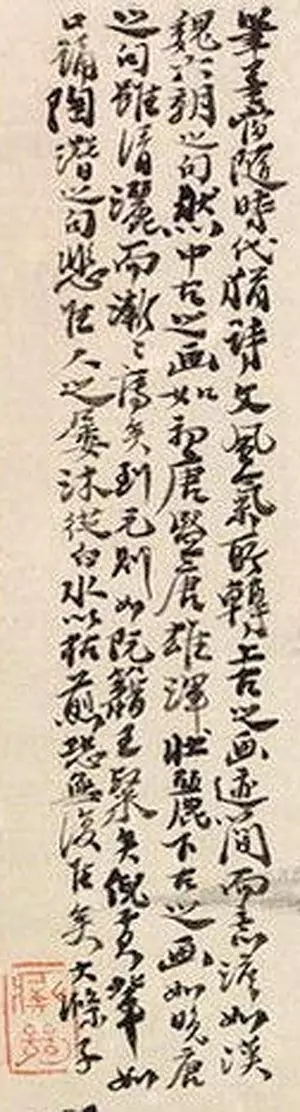 筆墨當隨時代猶詩文風氣所轉上古之画迹簡而意淡如漢
魏六朝之句然中古之画如初唐盛唐雄渾壯麗下古之画如晚唐
之句雖清灑而漸〻薄矣到元則如阮籍王粲矣倪黃輩如
口誦陶潛之句悲佳人之屢沐從白水以枯煎恐無復佳矣大滌子